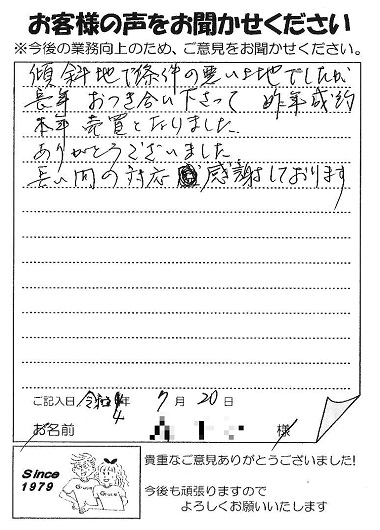 お客様の声をお聞かせください
※今後の業務向上のため、ご意見をお聞かせください。
傾斜地で條件の悪い土地でしたが
長年 おつき合い下さって 昨年成約
本年 売買となりました
ありがとうございました
長い間の対応 感謝しております
ご記入日 令和4年 7月 20日
お名前 様
Since
1979
貴重なご意見ありがとうございました!
今後も頑張りますので
よろしくお願いいたします